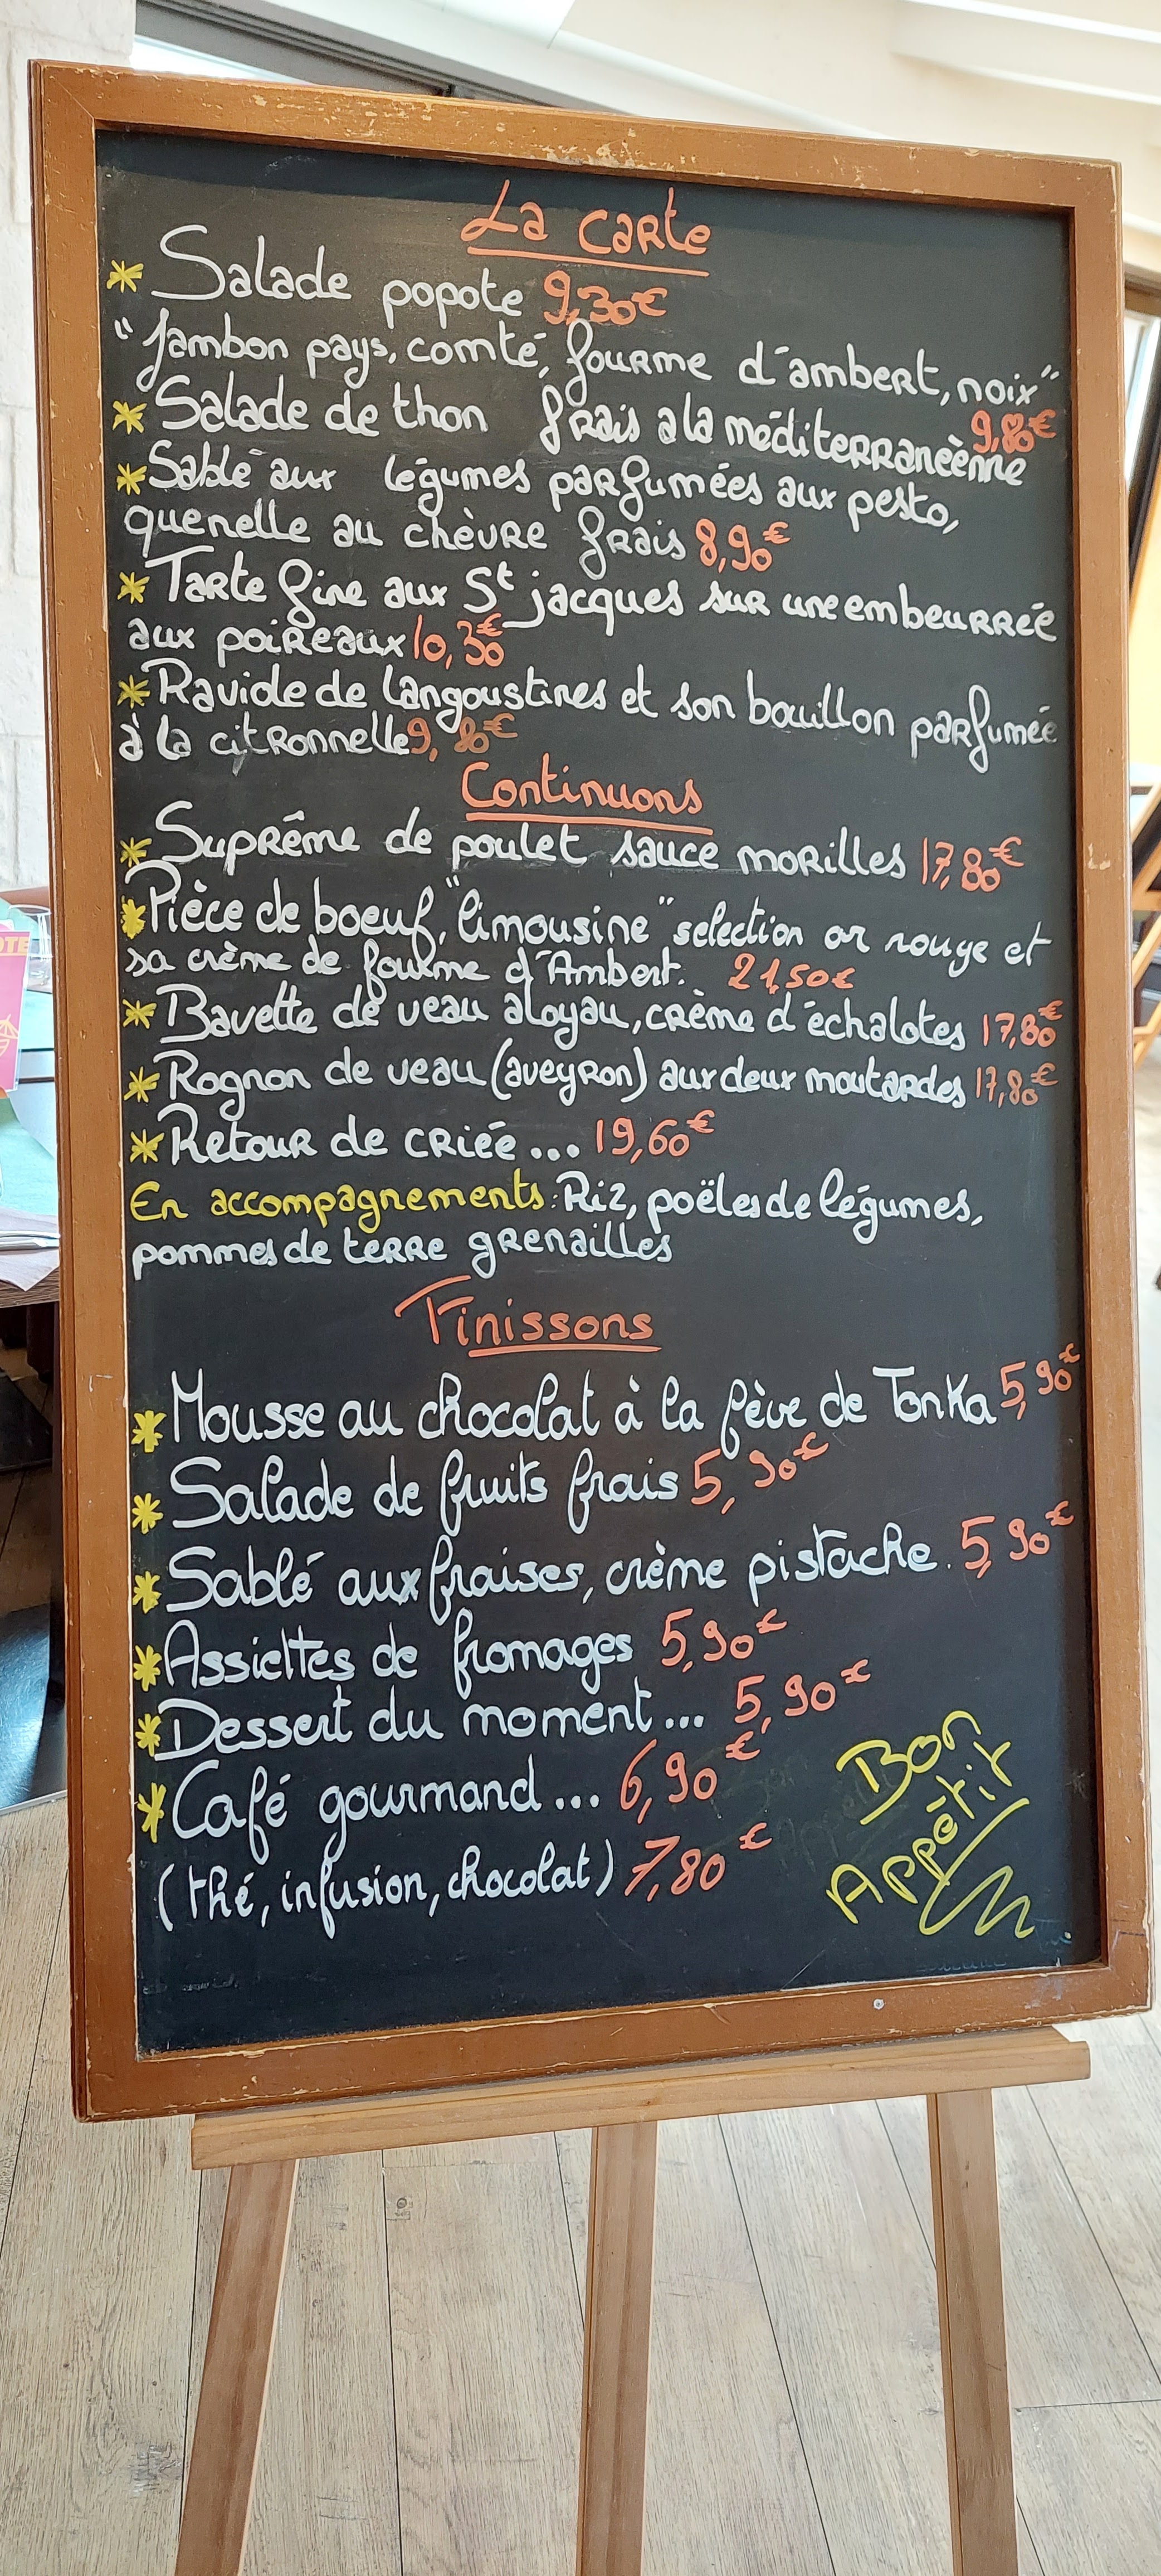 La carte
* Salade popote 9,30€
"Jambon pays, comté, fourme d'ambert, noix"
* Salade de thon frais a la méditerranéènne 9,80€
* Sablé aux légumes parfumées aux pesto,
quenelle au chèvre frais 8,90€
* Tarte fine aux St jacques sur une embeurrée
aux poireaux 10,30€
* Ravide de langoustines et son bouillon parfumée
à la citronnelle 9,80€
Continuons
* Suprême de poulet sauce morilles 17,80€
* Pièce de boeuf, "limousine" selection or rouge et
sa crème de fourme d'Ambert. 21,50€
* Bavette de veau aloyau, crème d'échalotes 17,80€
* Rognon de veau (aveyron) aux deux moutardes 17,80€
* Retour de criée... 19,60€
En accompagnements: Riz, poëles de légumes,
pommes de terre grenailles
Finissons
* Mousse au chocolat à la fève de Tonka 5,90€
* Salade de fruits frais 5,90€
* Sablé aux fraises, crème pistache. 5,90€
* Assiettes de fromages 5,90€
* Dessert du moment... 5,90€
* Café gourmand... 6,90€
(thé, infusion, chocolat) 7,80€
Bon
Appétit